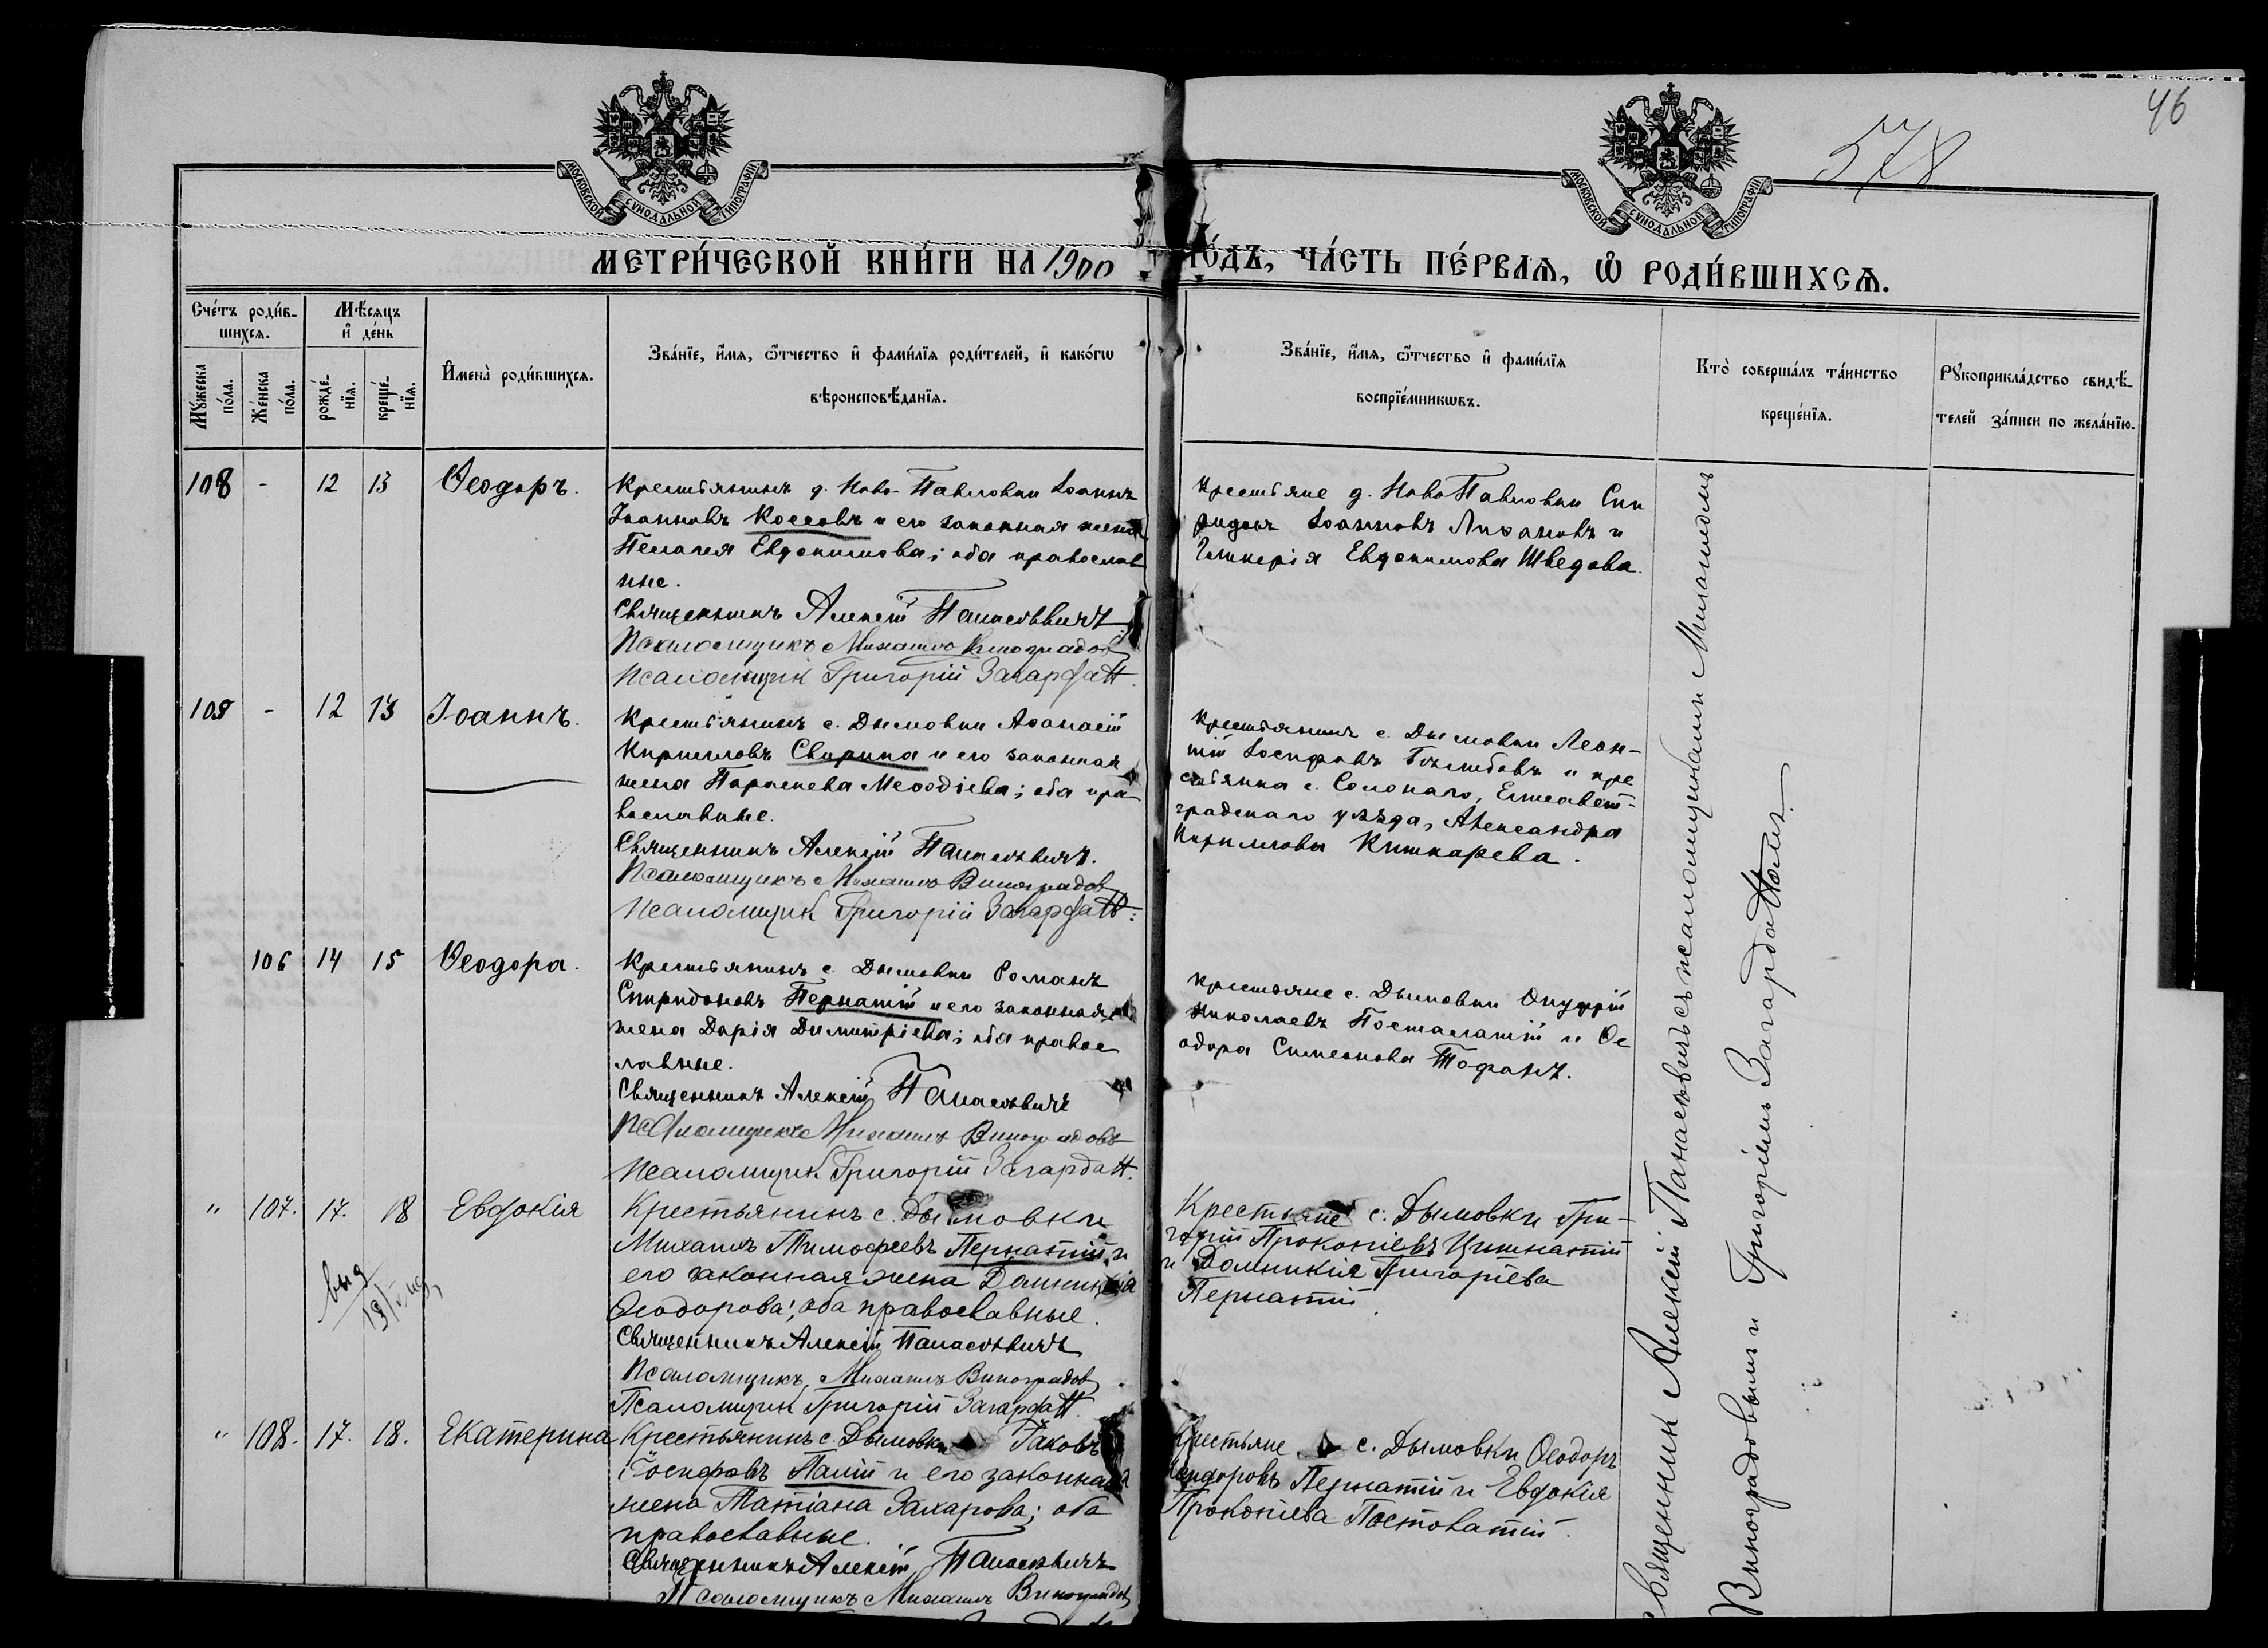 46
578
МОСКОВСКОЙ СѴНОДАЛЬНОЙ ТИПОГРАФІИ
МОСКОВСКОЙ СѴНОДАЛЬНОЙ ТИПОГРАФІИ
МЕТРИ́ЧЕСКОЙ КНИ́ГИ НА 1900 ГО́ДЪ, ЧА́СТЬ ПЕ́РВАѦ, Ѽ РОДИ́ВШИХСѦ.
Сче́тъ роди́в-
шихсѧ.
Мѣ́сяцъ
и҆ де́нь
Мꙋ́жеска
по́ла.
Же́нска
по́ла.
рожде́-
нїѧ.
креще́-
нїѧ.
И҆мена̀ роди́вшихсѧ.
Зва́нїе, и҆́мѧ, ѻ҆́тчество и҆ фами́лїѧ роди́телей, и҆ како́гѡ
вѣроисповѣ́данїѧ.
Зва́нїе, и҆́мѧ, ѻ҆́тчество и҆ фами́лїѧ
воспрїе́мникѡвъ.
Кто̀ соверша́лъ та́инство
креще́нїѧ.
Рꙋкоприкла́дство свидѣ́-
телей за́писи по жела́нїю.
108 - 12 13 Ѳеодоръ.
Крестьянинъ д. Ново-Павловки Іоаннъ
Іоанновъ Коссовъ и его законная жена
Пелагея Евдокимова; оба православ
ные.
Священникъ Алексій Панасевичъ
Псаломщикъ Михаилъ Виноградов
Псаломщик Григорій Загардатт.
Крестьяне д. Ново Павловки Спи
ридонъ Іоанновъ Лихановъ и
Гликерія Евдокимова Шведова.
109 - 12 13 Іоаннъ.
Крестьянинъ с. Дымовки Аѳанасій
Кирилловъ Свирипа и его законная
жена Параскева Меѳодіева; оба пра-
вославные.
Священникъ Алексій Панасевичъ.
Псаломщикъ Михаилъ Виноградов
Псаломщик Григорій Загардатт.
Крестьянинъ с. Дымовки Леон-
тій Іосифовъ и кре
стьянка с. Солонаго, Елисавет-
градскаго уѣзда, Александра
Кириллова Кишкарева.
106 14 15 Ѳеодора.
Крестьянинъ с. Дымовки Романъ
Спиридоновъ Пернатій и его законная
жена Дарія Димитріева; оба правос
лавные.
Священникъ Алексій Панасевичъ
Псаломщикъ Михаилъ Виноградовъ
Псаломщик Григорій Загардатт.
Крестьяне с. Дымовки Онуфрій
Николаевъ Посталатій и Ѳе
одора Симеонова Тофанъ.
" 107. 17. 18 Евдокія
выд
Крестьянинъ с. Дымовки
Михаилъ Тимофеевъ Пернатій и
его законная жена Домникія
Ѳеодорова; оба православные.
Священникъ Алексій Панасевичъ
Псаломщикъ Михаилъ Виноградов
Псаломщик Григорій Загардатт.
Крестьяне с. Дымовки Гри-
горій Прокопіевъ Цишнатій
и Домникія Григоріева
Пернатій
" 108. 17. 18. Екатерина
Крестьянинъ с. Дымовки Іаковъ
Іосифовъ Палій и его законная
жена Татіана Захарова; оба
православные.
Священникъ Алексій Панасевичъ
Псаломщикъ Михаилъ Виноградов
Крестьяне с. Дымовки Ѳеодоръ
Пернатій и Евдокія
Прокопіева Постоватій.
Священник Алексій Панасевичъ съ псаломщиками Михаиломъ
Виноградовымъ и Григоріемъ Загардаттомъ.